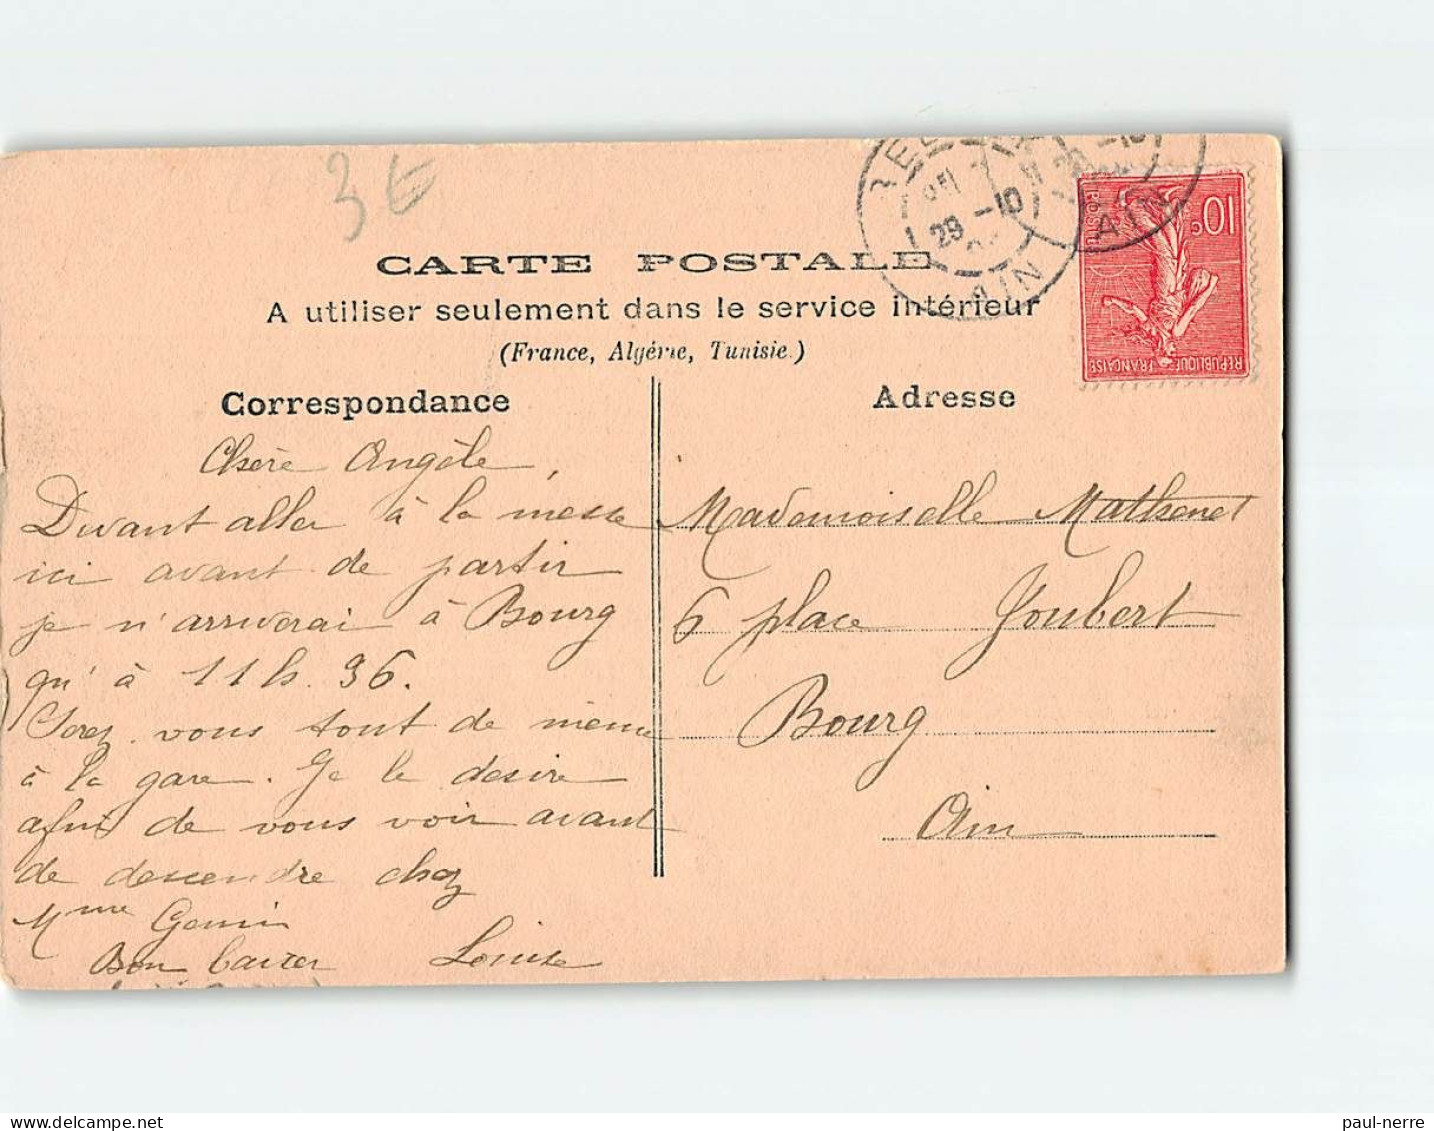 3€
CARTE POSTALE
A utiliser seulement dans le service intérieur
(France, Algérie, Tunisie.)
Correspondance
Chère Angèle,
Devant aller à la messe
ici avant de partir
je n'arriverai à Bourg
qu'à 11h. 36.
Serez vous tout de même
à la gare. Je le désire
afin de vous voir avant
de descendre chez
Mme Genin
Bon baiser Louise
Adresse
Mademoiselle Mathenet
6 place Joubert
Bourg
Ain
29 -10
AIN
AIN
10c
POSTES
REPUBLIQUE FRANÇAISE
paul-nerre